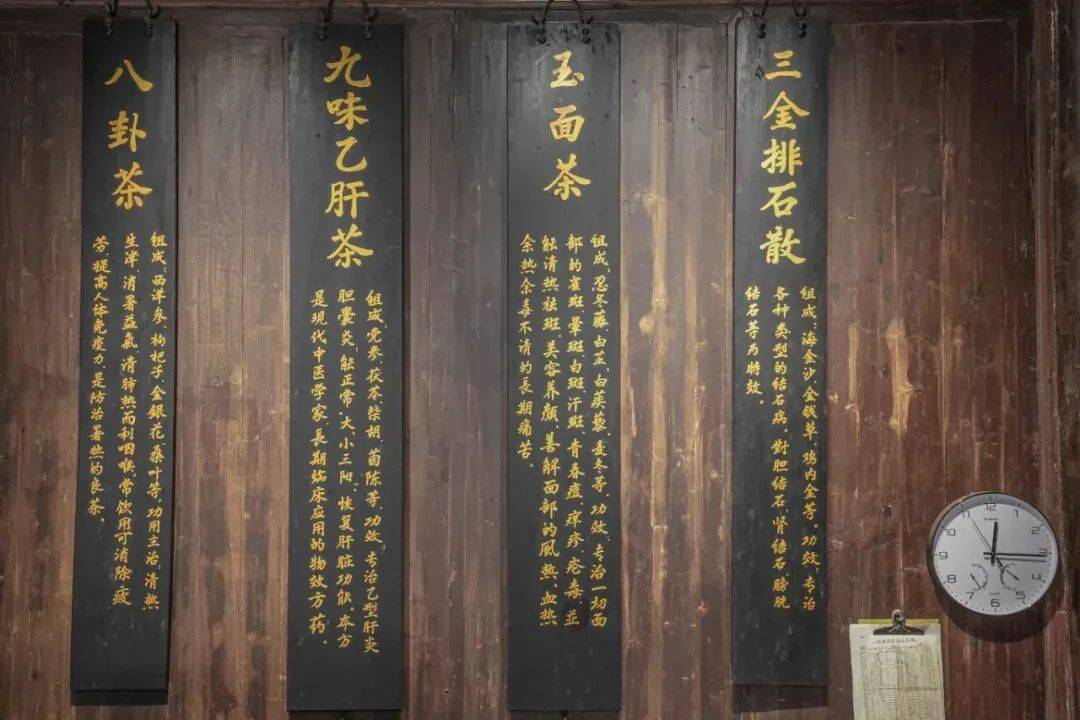 三金排石散
组成：海金沙、金钱草、鸡内金等。功效：专治
各种类型的结石病。對胆结石、肾结石、膀胱
结石等为特效。
玉面茶
组成：忍冬藤、白芷、白蒺藜、麦冬等，功效：专治一切面
部的雀斑、晕斑、白斑、汗斑、青春痘、痒疹、疮毒，并
能清热祛斑、美容养颜，善解面部的風热、血热
余热余毒不清的長期痛苦。
九味乙肝茶
组成：党参、茯苓、柴胡、茵陈等，功效：专治乙型肝炎
胆囊炎，能正常大、小三阳，恢复肝脏功能。本方
是现代中医学家，長期临床应用的物效方药。
八卦茶
组成：西洋参、枸杞子、金銀花、桑叶等，功用主治：清热
生津，消暑益氣，清肺热而利咽喉，常饮用可消除疲
劳，提高人体免疫力，是防治暑热的良茶。